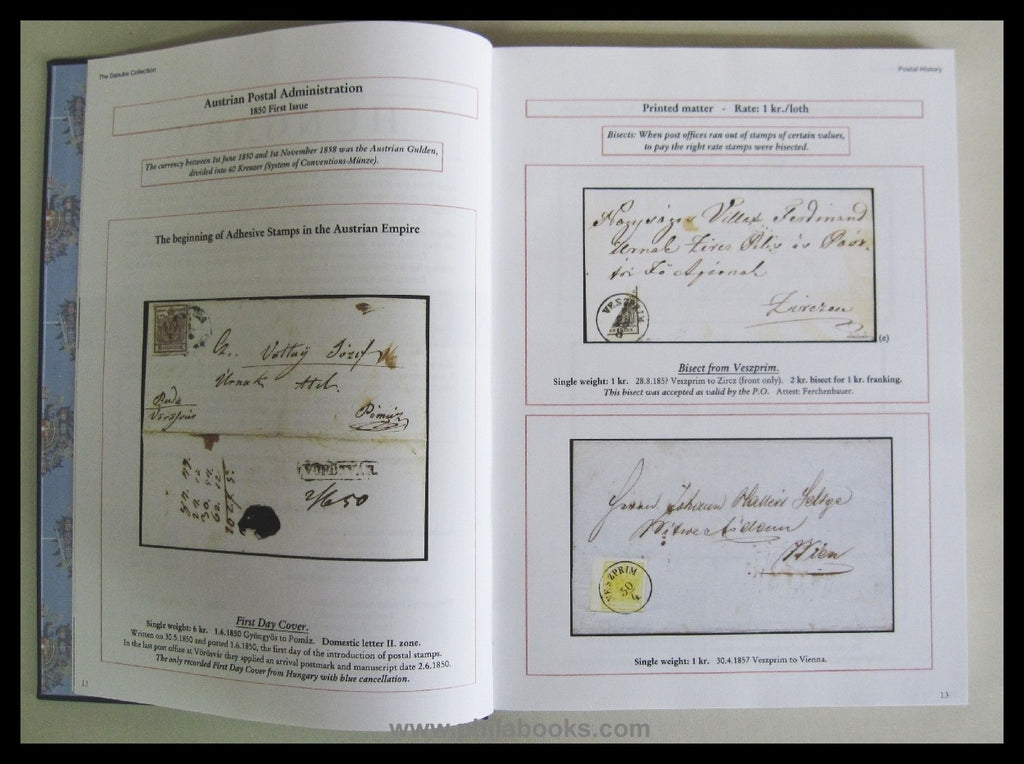 The Danube Collection
Austrian Postal Administration
1850 First Issue
The currency between 1st June 1850 and 1st November 1858 was the Austrian Gulden,
divided into 60 Kreuzer (System of Conventions-Münze).
The beginning of Adhesive Stamps in the Austrian Empire
Buda
Pomáz
2/6 50
First Day Cover.
Single weight: 6 kr. 1.6.1850 Gyöngyös to Pomáz. Domestic letter II. zone.
Written on 30.5.1850 and posted 1.6.1850, the first day of the introduction of postal stamps.
In the last post office at Vörösvár they applied an arrival postmark and manuscript date 2.6.1850.
The only recorded First Day Cover from Hungary with blue cancellation.
12
Postal History
Printed matter - Rate: 1 kr./loth
Bisects: When post offices ran out of stamps of certain values,
to pay the right rate stamps were bisected.
Ferdinand
VESZPRIM
Zirczen
(e)
Bisect from Veszprim.
Single weight: 1 kr. 28.8.185? Veszprim to Zircz (front only). 2 kr. bisect for 1 kr. franking.
This bisect was accepted as valid by the P.O. Attest: Ferchenbauer.
Herrn Johann
Wien
VESZPRIM
30
4
Single weight: 1 kr. 30.4.1857 Veszprim to Vienna.
13
www.philabooks.com